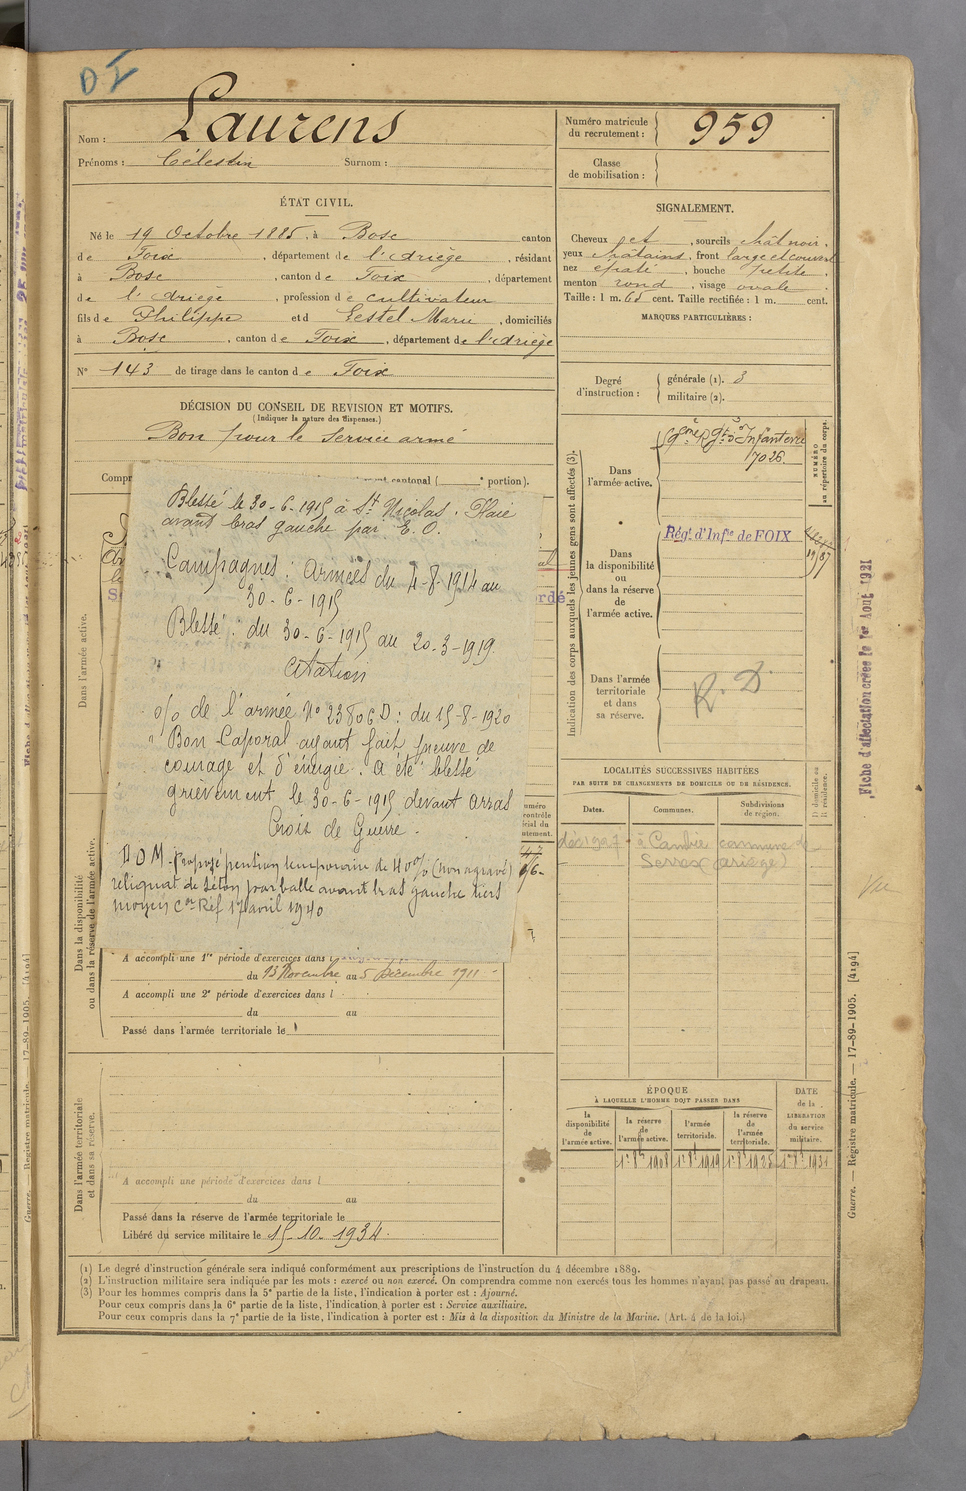 DI
Nom : Laurens
Prénoms : Célestin Surnom :
ÉTAT CIVIL.
Né le 19 Octobre 1885, à Bosc canton
de Foix, département de l'Ariège, résidant
à Bosc, canton de Foix, département
de l'Ariège, profession de cultivateur
fils de Philippe et d Lestel Marie, domiciliés
à Bosc, canton de Foix, département de l'Ariège
N° 143 de tirage dans le canton de Foix
DÉCISION DU CONSEIL DE REVISION ET MOTIFS.
(Indiquer la nature des dispenses.)
Bon pour le service armé
Compr cantonal ( portion).
Blessé le 30-6-1915 à St Nicolas. Plaie
avant bras gauche par E. O.
Campagnes : Armées du 4-8-1914 au
30-6-1915
Blessé : du 30-6-1915 au 20-3-1919.
Citation
o/o de l'armée N° 23806 D : du 15-8-1920
" Bon Caporal ayant fait preuve de
courage et d'énergie. A été blessé
grièvement le 30-6-1915 devant Arras
Croix de Guerre.
D O M. Proposé pension temporaire de 10% (non aggravé)
reliquat de séton par balle avant bras gauche tiers
moyen Con Réf 17 avril 1940
Dans l'armée active.
Dans la disponibilité
ou dans la réserve de l'armée active.
A accompli une 1re période d'exercices dans l
du 13 Novembre au 5 Décembre 1911
A accompli une 2e période d'exercices dans l
du au
Passé dans l'armée territoriale le
Dans l'armée territoriale
et dans sa réserve.
A accompli une période d'exercices dans l
du au
Passé dans la réserve de l'armée territoriale le
Libéré du service militaire le 15-10-1934.
Numéro matricule
du recrutement : 959
Classe
de mobilisation :
SIGNALEMENT.
Cheveux et, sourcils chât noir,
yeux châtains, front large et couvert
nez épaté, bouche petite,
menton rond, visage ovale.
Taille : 1 m. 60 cent. Taille rectifiée : 1 m. cent.
MARQUES PARTICULIÈRES :
Degré
d'instruction :
générale (1). 3
militaire (2).
Indication des corps auxquels les jeunes gens sont affectés (3).
NUMÉRO
au répertoire du corps.
Dans
l'armée active.
9ème Rgt d'Infanterie
7026
Dans
la disponibilité
ou
dans la réserve
de
l'armée active.
Régt d'Infie de FOIX
Dans l'armée
territoriale
et dans
sa réserve.
R. D.
LOCALITÉS SUCCESSIVES HABITÉES
PAR SUITE DE CHANGEMENTS DE DOMICILE OU DE RÉSIDENCE.
Dates.
Communes.
Subdivisions
de région.
D domicile ou
R résidence.
à Cambié commune de
Serres (Ariège)
ÉPOQUE
À LAQUELLE L'HOMME DOIT PASSER DANS
la
disponibilité
de
l'armée active.
la réserve
de
l'armée active.
l'armée
territoriale.
la réserve
de
l'armée
territoriale.
DATE
de la
LIBÉRATION
du service
militaire.
1er 8bre 1908
1er 8bre 1919
1er 8bre 1925
1er 8bre 1931
(1) Le degré d'instruction générale sera indiqué conformément aux prescriptions de l'instruction du 4 décembre 1889.
(2) L'instruction militaire sera indiquée par les mots : exercé ou non exercé. On comprendra comme non exercés tous les hommes n'ayant pas passé au drapeau.
(3) Pour les hommes compris dans la 5e partie de la liste, l'indication à porter est : Ajourné.
Pour ceux compris dans la 6e partie de la liste, l'indication à porter est : Service auxiliaire.
Pour ceux compris dans la 7e partie de la liste, l'indication à porter est : Mis à la disposition du Ministre de la Marine. (Art. 4 de la loi.)
Fiche d'affectation créée le 1er Aout 1921
Vu
Guerre. — Registre matricule. — 17-89-1905. [4194]
Guerre. — Registre matricule. — 17-89-1905. [4194]